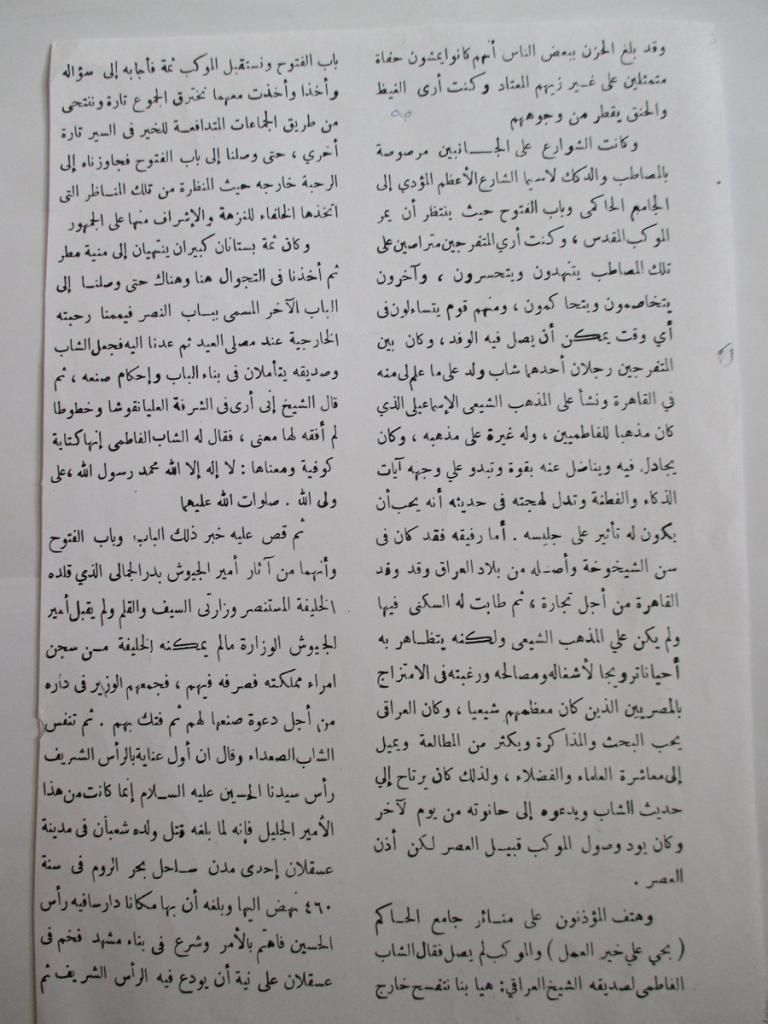 وقد بلغ الحزن ببعض الناس أنهم كانوا يمشون حفاة
متمثلين على غير زيهم المعتاد وكنت أرى الغيظ
والحنق يقطر من وجوههم
وكانت الشوارع على الجانبين مرصوصة
بالمصاطب والدكك لاسيما الشارع الأعظم المؤدي إلى
الجامع الحاكمى وباب الفتوح حيث ينتظر أن يمر
الموكب المقدس ، وكنت أري المتفرجين متراصين على
تلك المصاطب يتنهدون ويتحسرون ، وآخرون
يتخاصمون ويتحاكمون ، ومنهم قوم يتساءلون فى
أي وقت يمكن أن يصل فيه الوفد ، وكان بين
المتفرجين رجلان أحدهما شاب ولد على ما علم لى منه
في القاهرة ونشأ على المذهب الشيعى الإسماعيلى الذي
كان مذهبا للفاطميين ، وله غيرة على مذهبه ، وكان
يجادل فيه ويناضل عنه بقوة وتبدو علي وجهه آيات
الذكاء والفطنة وتدل لهجته فى حديثه أنه يحب أن
يكون له تأثير على جليسه . أما رفيقه فقد كان فى
سن الشيخوخة وأصله من بلاد العراق وقد وفد
القاهرة من أجل تجارة ، ثم طابت له السكنى فيها
ولم يكن علي المذهب الشيعى ولكنه يتظاهر به
أحيانا ترويجا لأشغاله ومصالحه ورغبته فى الامتزاج
بالمصريين الذين كان معظمهم شيعيا ، وكان العراقى
يحب البحث والمذاكرة ويكثر من المطالعة ويميل
إلى معاشرة العلماء والفضلاء ، ولذلك كان يرتاح إلي
حديث الشاب ويدعوه إلى حانوته من يوم لآخر
وكان يود وصول الموكب قبيل العصر لكن أذن
العصر .
وهتف المؤذنون على منائر جامع الحاكم
( بحي علي خير العمل ) والموكب لم يصل فقال الشاب
الفاطمى لصديقه الشيخ العراقي : هيا بنا نتفسح خارج
باب الفتوح ونستقبل الموكب ثمة فأجابه إلى سؤاله
وأخذا وأخذت معهما نخترق الجموع تارة وننتحى
من طريق الجماعات المتدافعة للخير فى السير تارة
أخري ، حتى وصلنا إلى باب الفتوح فجاوزناه إلى
الرحبة خارجه حيث النظرة من تلك المناظر التى
اتخذها الخلفاء للنزهة والإشراف منها على الجمهور
وكان ثمة بستانان كبيران ينتهيان إلى منية مطر
ثم أخذنا فى التجوال هنا وهناك حتى وصلنا إلى
الباب الآخر المسمى بباب النصر فيممنا رحبته
الخارجية عند مصلى العيد ثم عدنا اليه فجعل الشاب
وصديقه يتأملان فى بناء الباب وإحكام صنعه ، ثم
قال الشيخ إنى أرى فى الشرفة العليا نقوشا وخطوطا
لم أفقه لها معنى ، فقال له الشاب الفاطمى إنها كتابة
كوفية ومعناها : لا إله إلا الله محمد رسول الله ، على
ولى الله . صلوات الله عليهما
ثم قص عليه خبر ذلك الباب وباب الفتوح
وأنهما من آثار أمير الجيوش بدر الجمالى الذي قلده
الخليفة المستنصر وزارتى السيف والقلم ولم يقبل أمير
الجيوش الوزارة مالم يمكنه الخليفة من سجن
امراء مملكته فصرفه فيهم ، فجمعهم الوزير فى داره
من أجل دعوة صنعها لهم ثم فتك بهم . ثم تنفس
الشاب الصعداء وقال ان أول عناية بالرأس الشريف
رأس سيدنا الحسين عليه السلام إنما كانت من هذا
الأمير الجليل فإنه لما بلغه قتل ولده شعبان فى مدينة
عسقلان إحدى مدن ساحل بحر الروم فى سنة
٤٦٠ نهض اليها وبلغه أن بها مكانا دارسا فيه رأس
الحسين فاهتم بالأمر وشرع فى بناء مشهد فخم فى
عسقلان على نية أن يودع فيه الرأس الشريف ثم